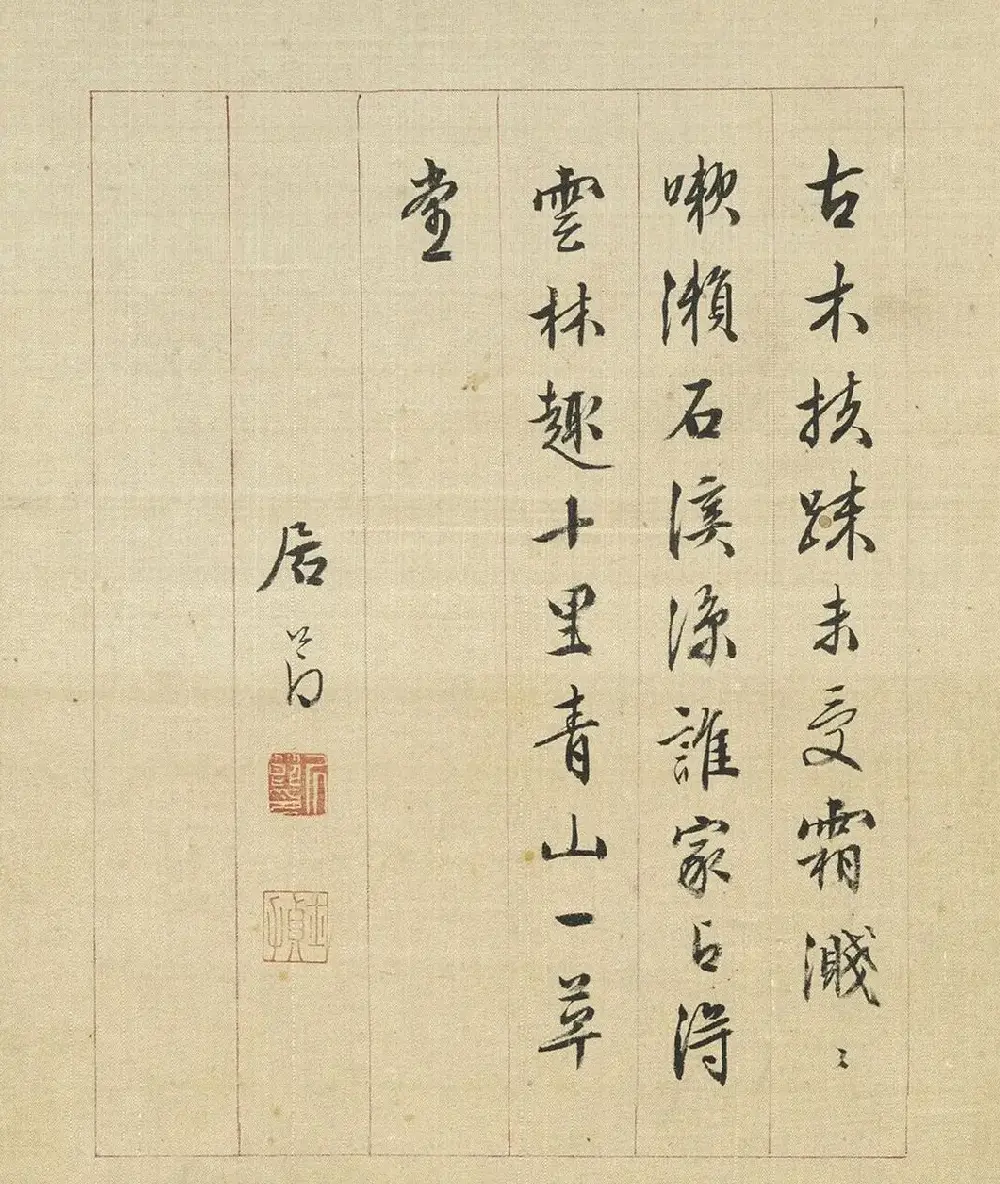 古木扶踈未受霜濺〻
嗽瀨石溪涼誰家占得
雲林趣十里青山一草
堂
居節